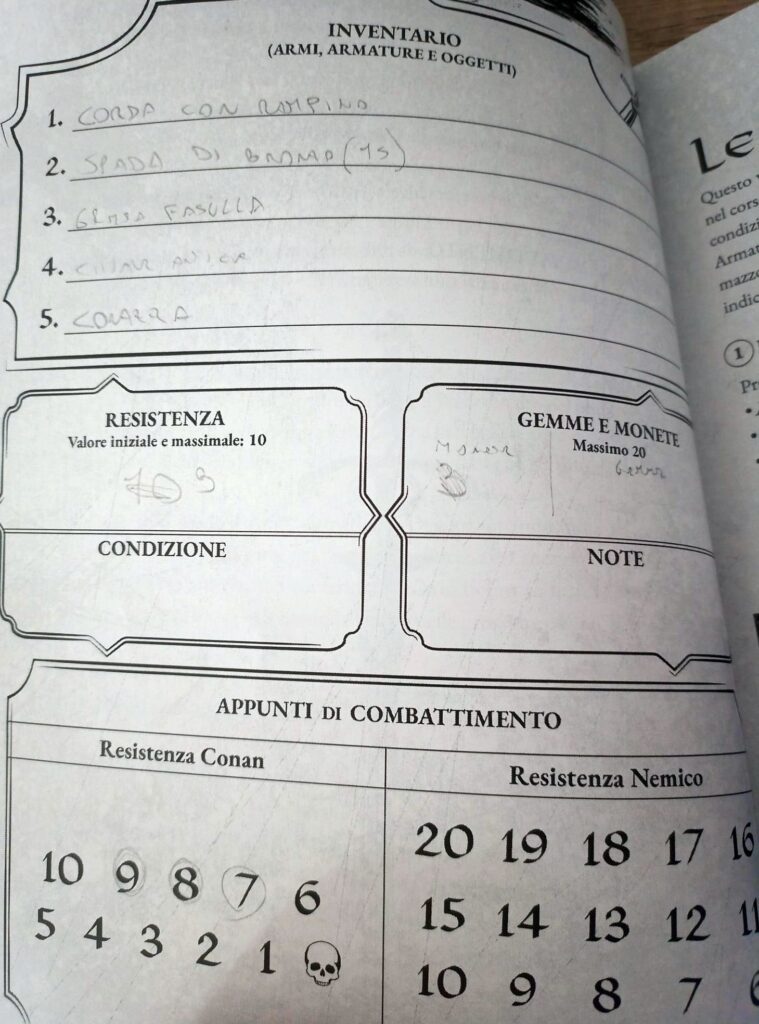 INVENTARIO
(ARMI, ARMATURE E OGGETTI)
1. CORDA CON RAMPINO
2. SPADA DI BRONZO (15)
3. GEMMA FASULLA
4. CHIAVE ANTICA
5. CORAZZA
RESISTENZA
Valore iniziale e massimale: 10
10 9
CONDIZIONE
GEMME E MONETE
Massimo 20
3
NOTE
APPUNTI DI COMBATTIMENTO
Resistenza Conan
10 9 8 7 6
5 4 3 2 1
Resistenza Nemico
20 19 18 17 16
15 14 13 12 11
10 9 8 7
Le
Questo
nel cors
condizi
Armat
mazzo
indic
1
Pr